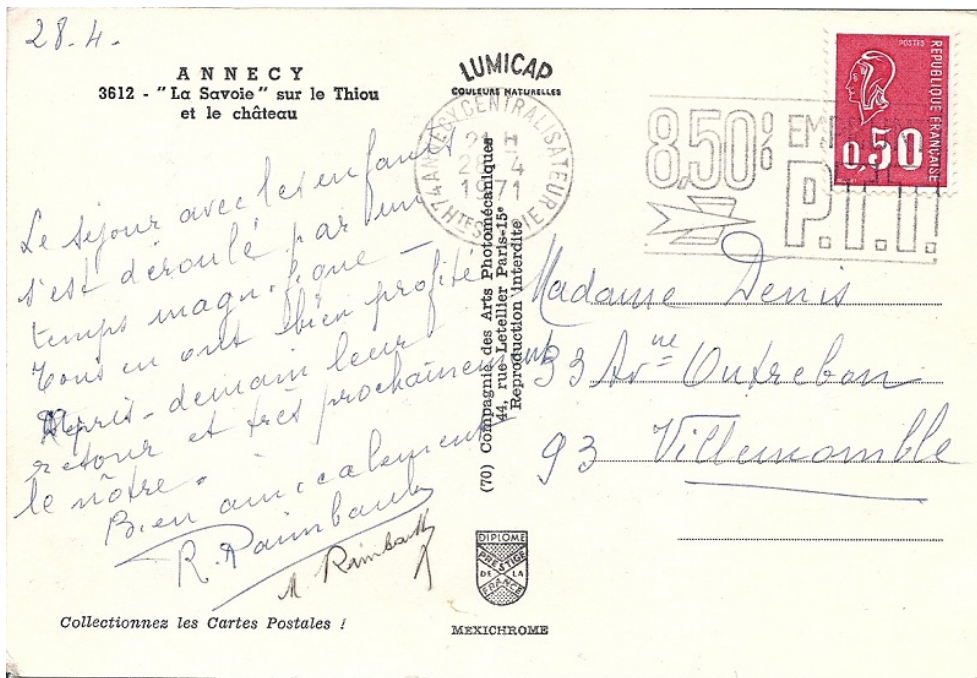 28.4.
ANNECY
3612 - "La Savoie" sur le Thiou
et le château
LUMICAP
COULEURS NATURELLES
POSTES
REPUBLIQUE FRANÇAISE
0,50
74 ANNECY CENTRALISATEUR
21 H
28 4
1971
HTES
IE
8,50%
P.T.T.
Le séjour avec les enfants
s'est déroulé par un
temps magnifique -
Tous en ont bien profité
Après-demain leur
retour et très prochainement
le nôtre.
Bien amicalement
R. Raimbault
M. Raimbault
(70) Compagnie des Arts Photomécaniques
44, rue Letellier Paris-15e
Reproduction interdite
Madame Denis
33 Avne Outrebon
93 Villemomble
DIPLOME
PRESTIGE
DE LA
FRANCE
MEXICHROME
Collectionnez les Cartes Postales !